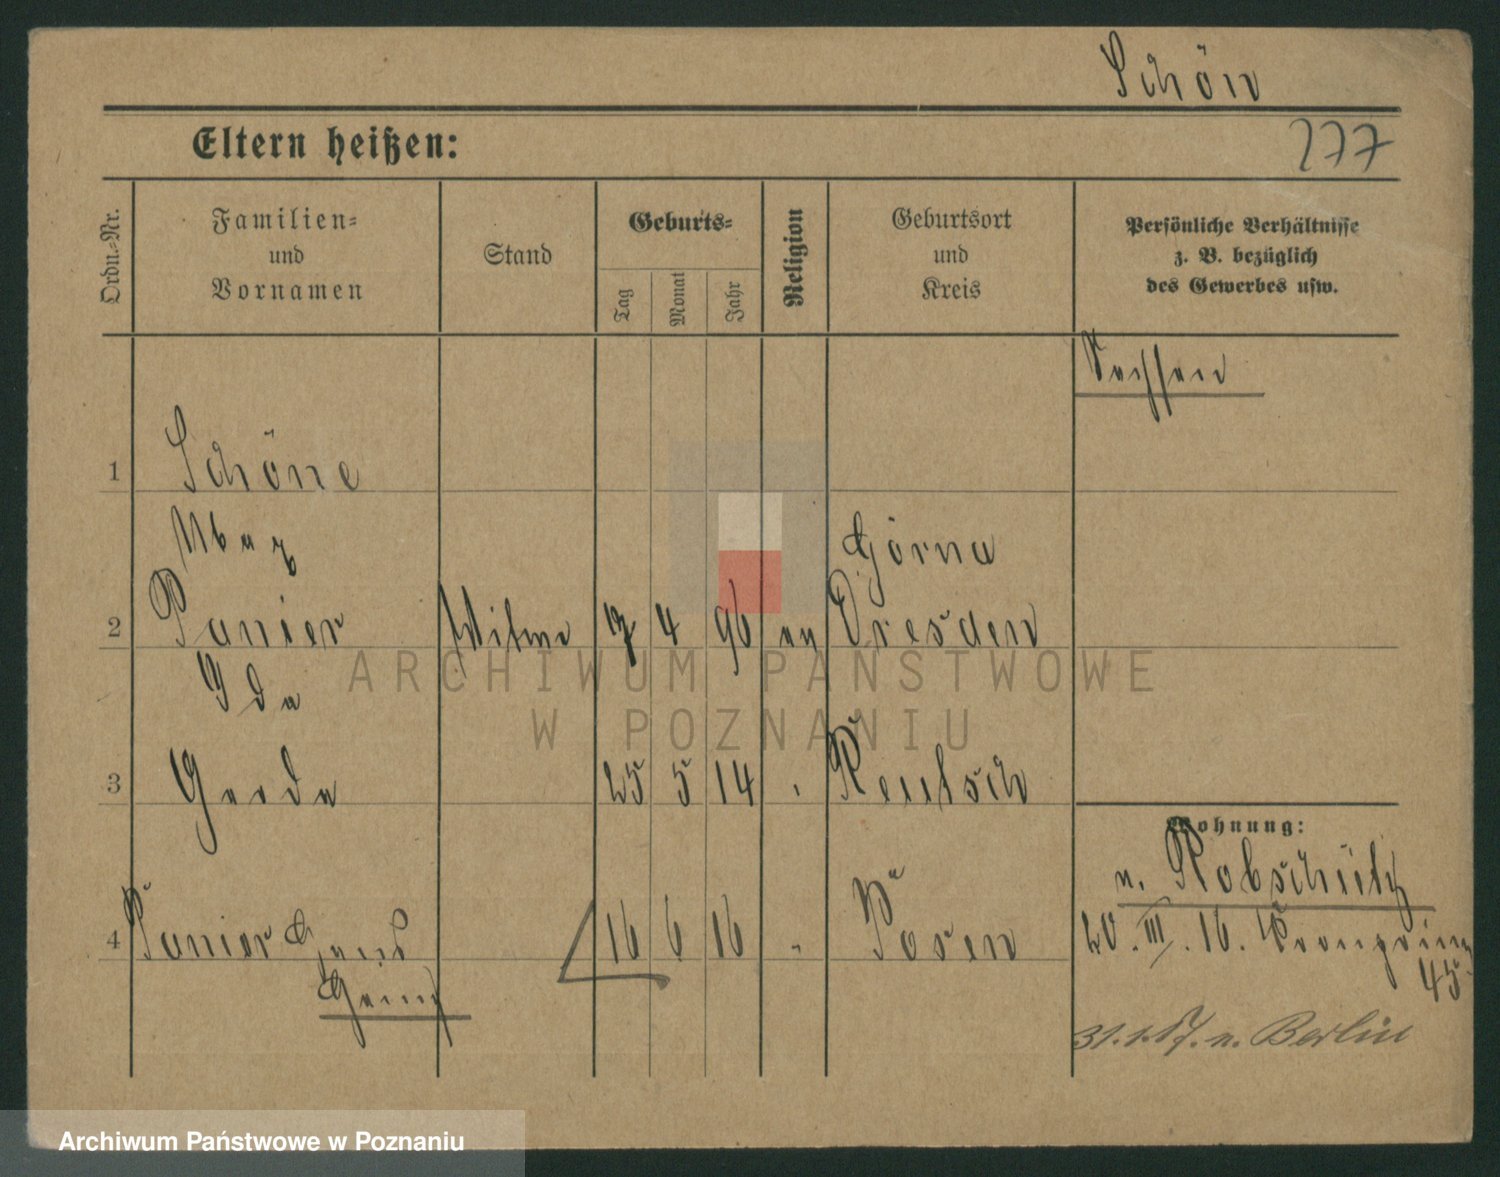 Schön
Eltern heißen:
277
Ordn.-Nr.
Familien-
und
Vornamen
Stand
Geburts-
Tag
Monat
Jahr
Religion
Geburtsort
und
Kreis
Persönliche Verhältnisse
z. B. bezüglich
des Gewerbes usw.
Sachsen
1
Schöne
Görna
2 Panier Witwe 7 4 96 ev Dresden
Ida
3 Gerda 25 5 14 Reutsch
Wohnung:
v. Robschütz
4 Panier Hans 16 6 16 " Posen
20. III. 16. Kronprinz
45
Heinz
31.1.17. n. Berlin
ARCHIWUM PAŃSTWOWE
W POZNANIU
Archiwum Państwowe w Poznaniu